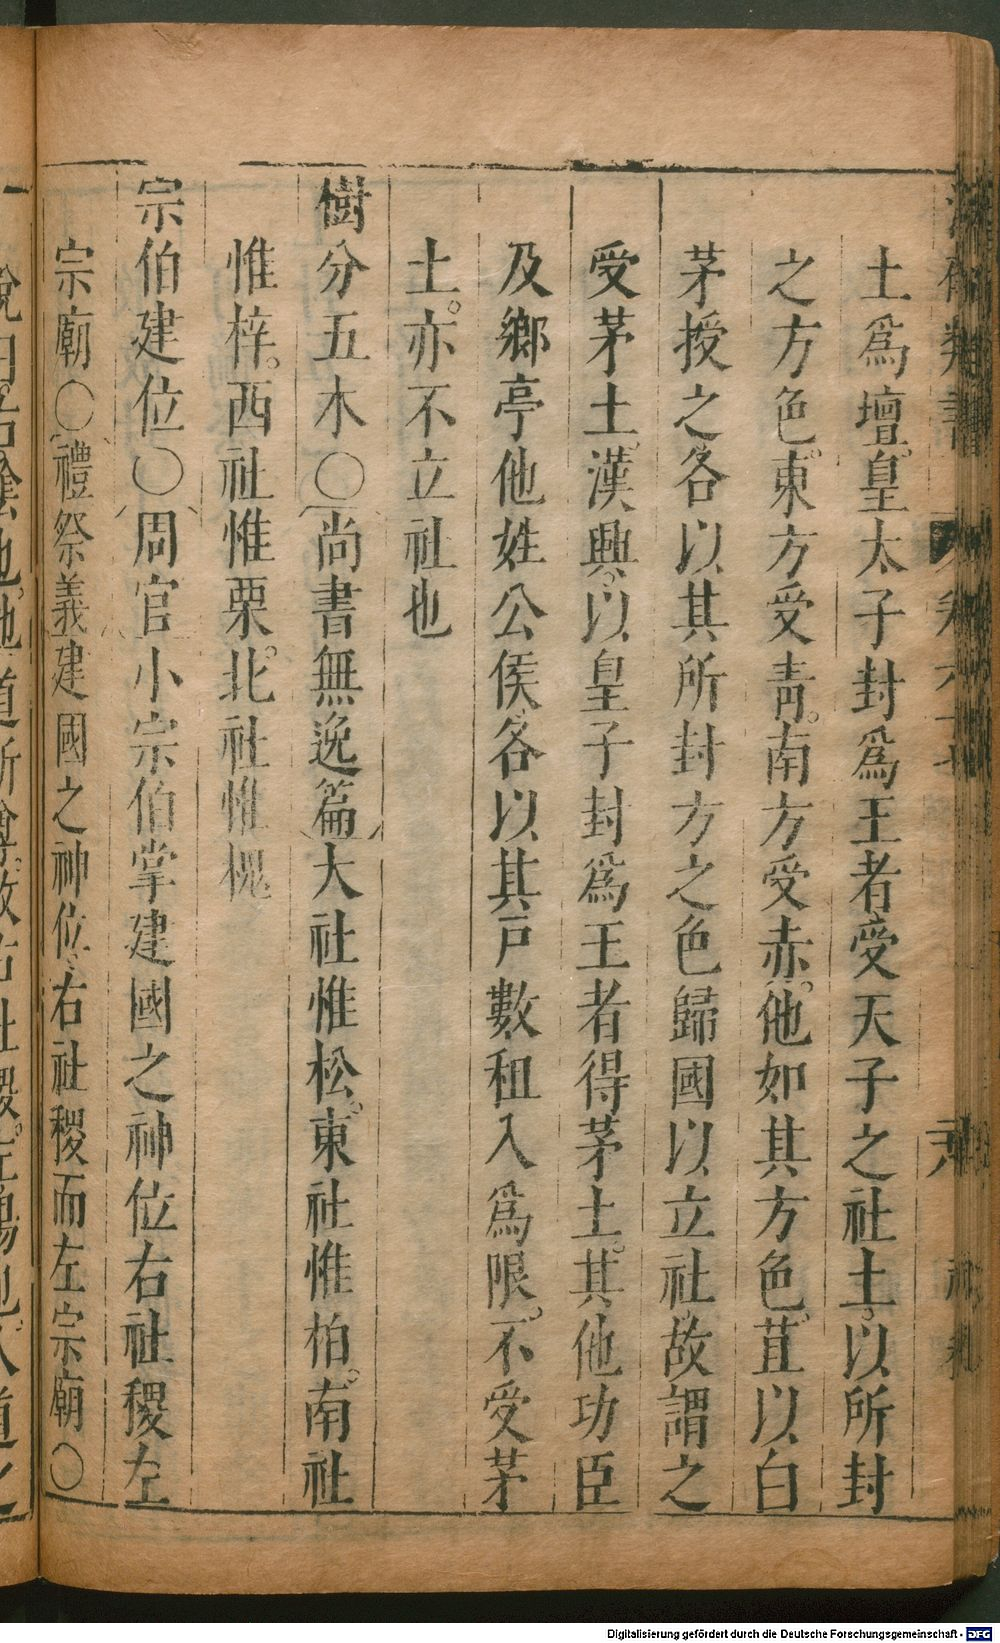 土爲壇。皇太子封爲王者受天子之社土。以所封
之方色。東方受靑。南方受赤。他如其方色。苴以白
茅授之各以其所封方之色歸國以立社。故謂之
受茅土。漢興。以皇子封爲王者得茅土。其他功臣
及鄉亭他姓公侯各以其戸數租入爲限。不受茅
土。亦不立社也
樹分五木〇尚書無逸篇大社惟松。東社惟柏。南社
惟梓。西社惟栗。北社惟槐
宗伯建位〇周官小宗伯掌建國之神位右社稷左
宗廟〇禮祭義建國之神位右社稷而左宗廟〇
地道所尊。故右社稷。左陽也。人道之
Digitalisierung gefördert durch die Deutsche Forschungsgemeinschaft - DFG